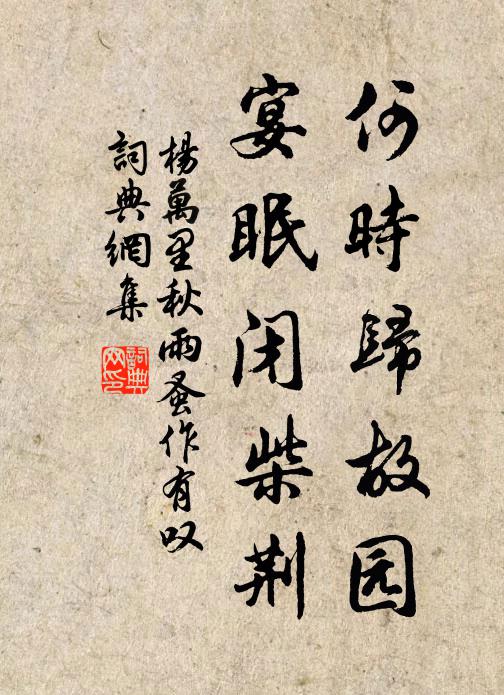 何時歸故园
宴眠闭柴荆
楊萬里秋雨蚤作有叹
詞典網集
詞典网印